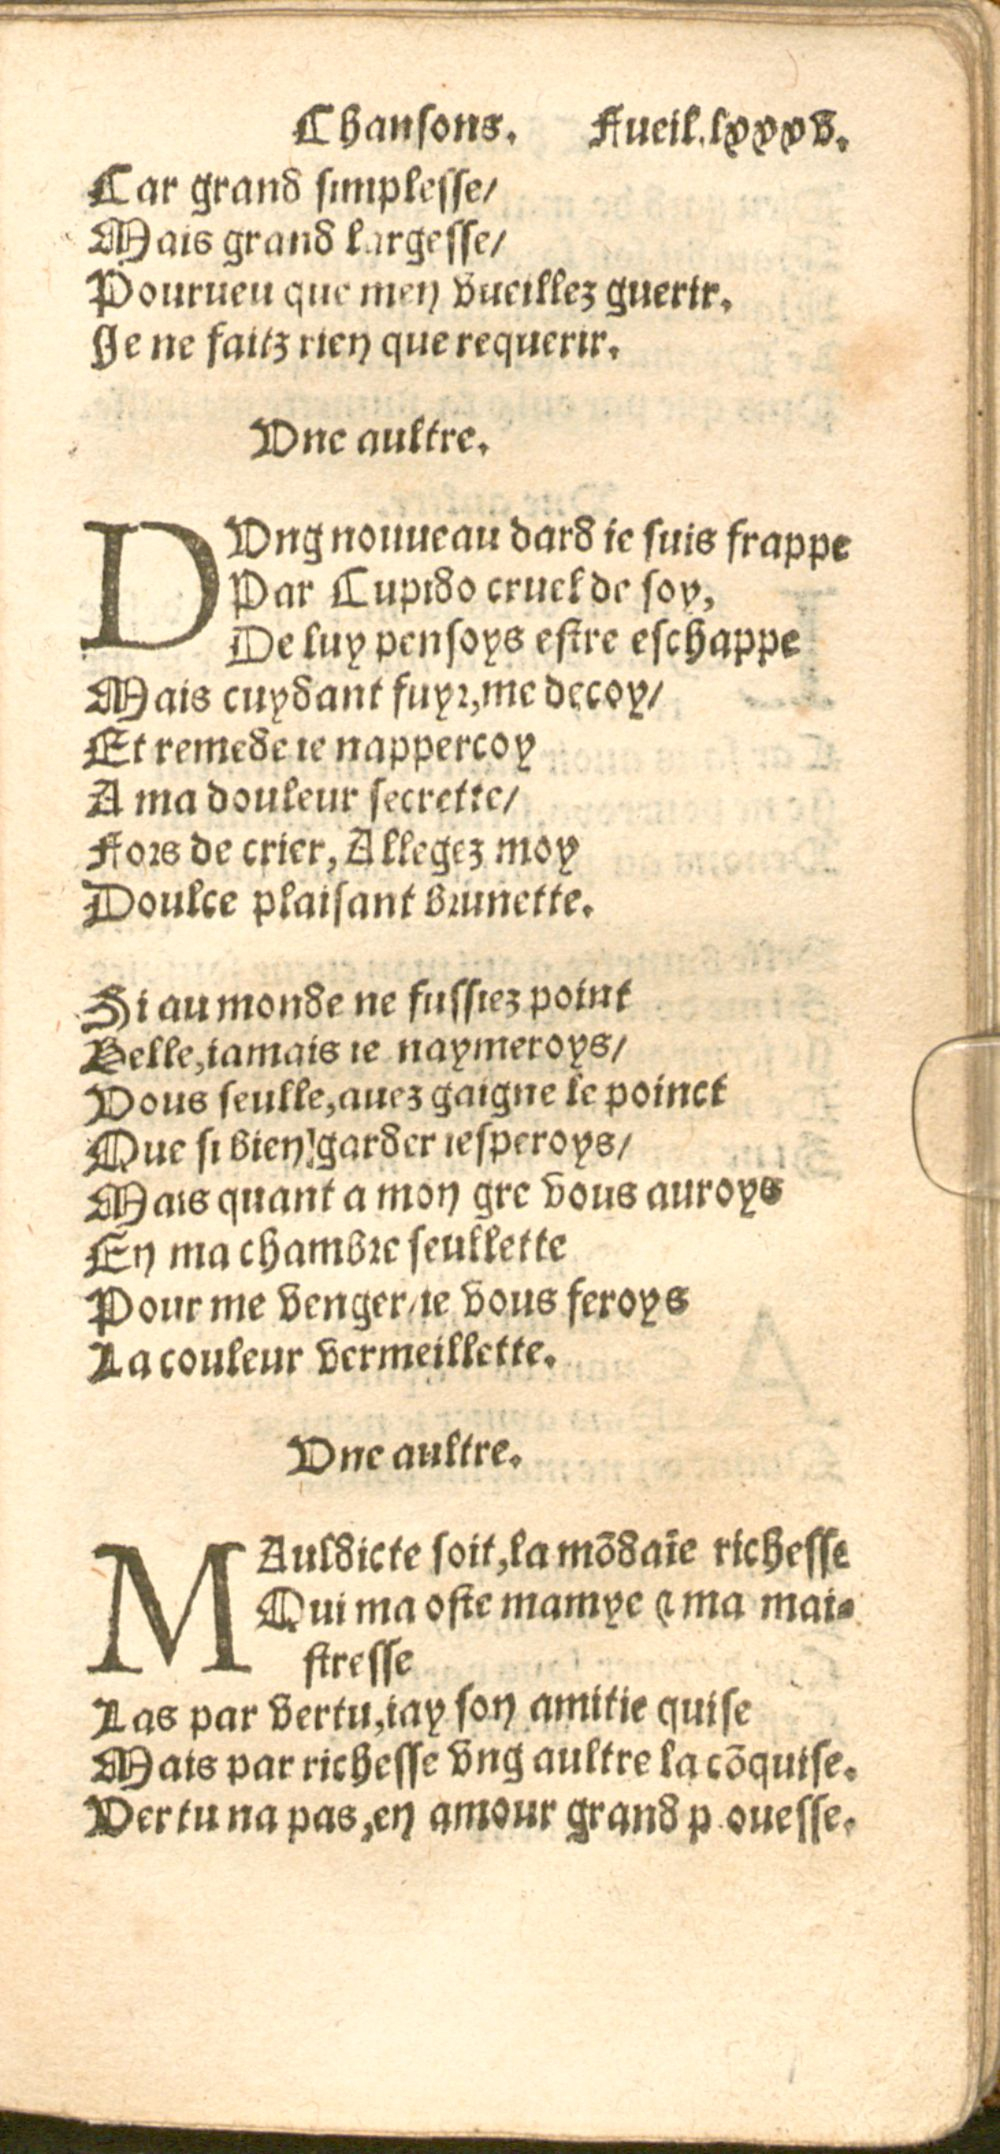 Chansons. Fueil.lxxxv.
Car grand simplesse/
Mais grand largesse/
Pourueu que men vueillez guerir.
Je ne faitz rien que requerir.
Vne aultre.
DVng nouueau dard ie suis frappe
Par Cupido cruel de soy,
De luy pensoys estre eschappe
Mais cuydant fuyr, me decoy/
Et remede ie nappercoy
A ma douleur secrette/
Fors de crier, Allegez moy
Doulce plaisant brunette.
Si au monde ne fussiez point
Belle, iamais ie naymeroys/
Vous seulle, auez gaigne le poinct
Que si bien garder iesperoys/
Mais quant a mon gre vous auroys
En ma chambre seullette
Pour me venger/ie vous feroys
La couleur vermeillette.
Vne aultre.
MAuldicte soit, la mōdaīe richesse
Qui ma oste mamye & ma mai-
stresse
Las par vertu, iay son amitie quise
Mais par richesse vng aultre la cōquise.
Vertu na pas, en amour grand p ouesse.